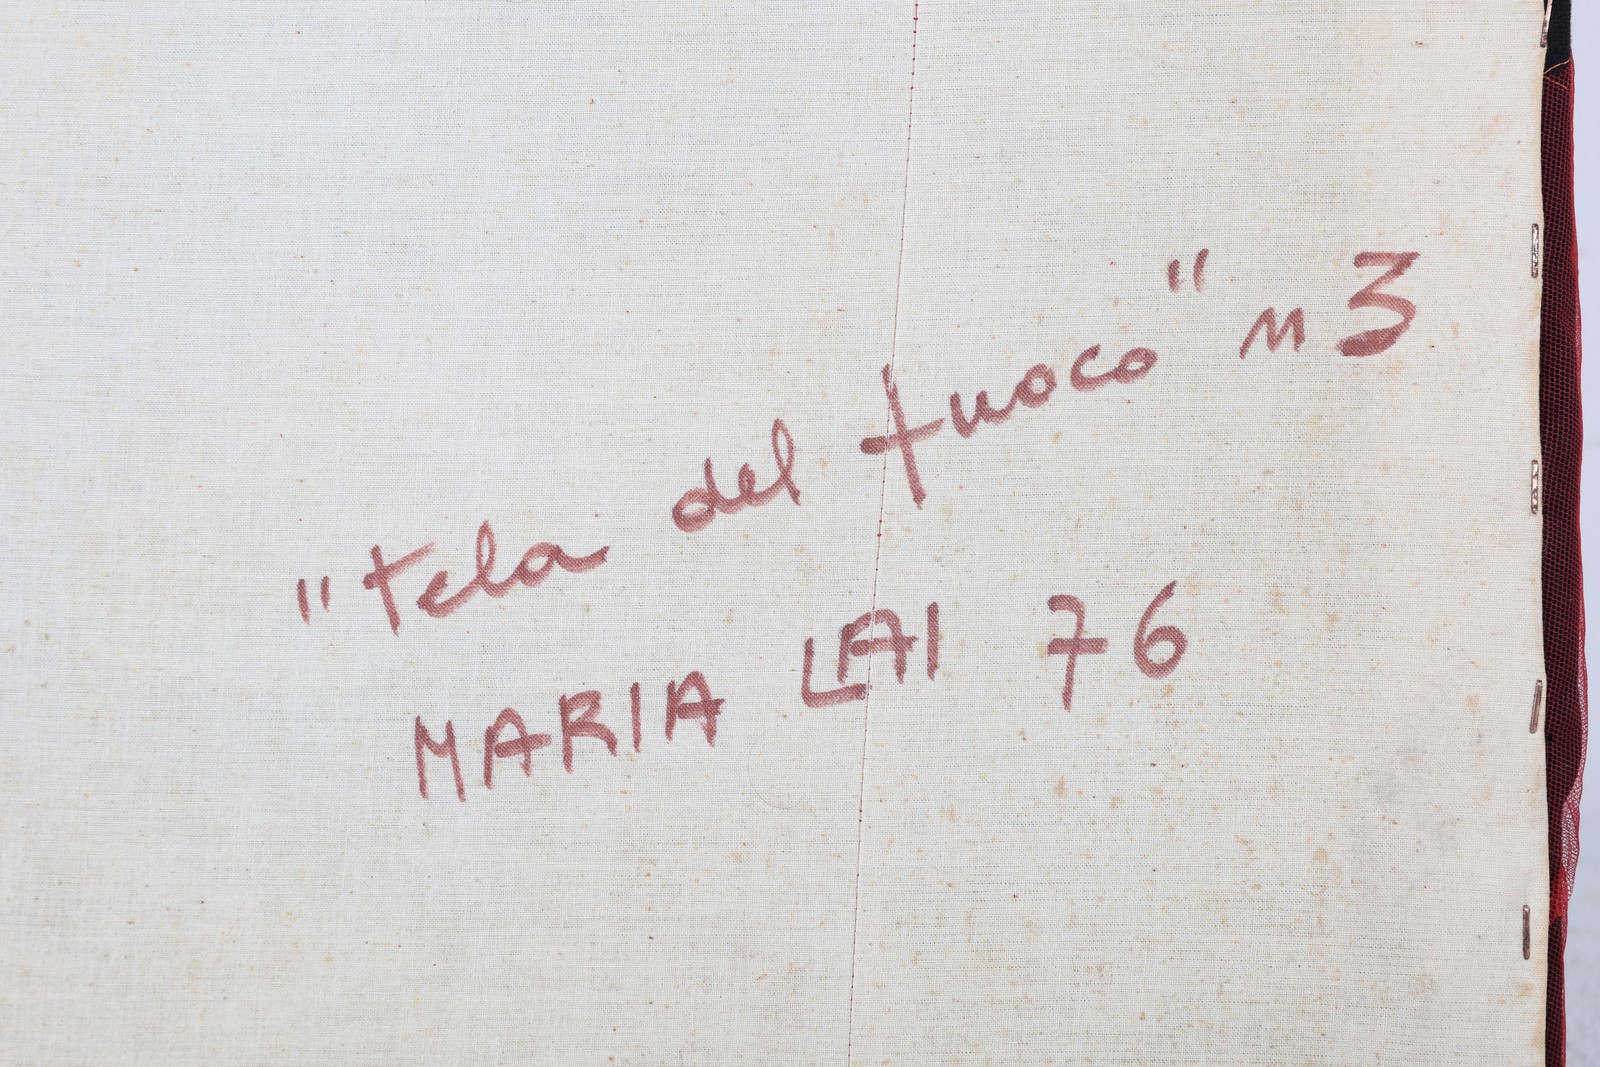 "tela del fuoco" n 3
MARIA LAI 76